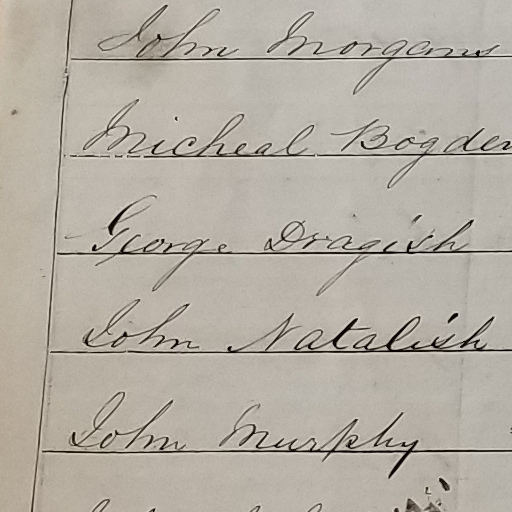 John Morgans
Micheal Bogden
George Dragish
John Natalish
John Murphy